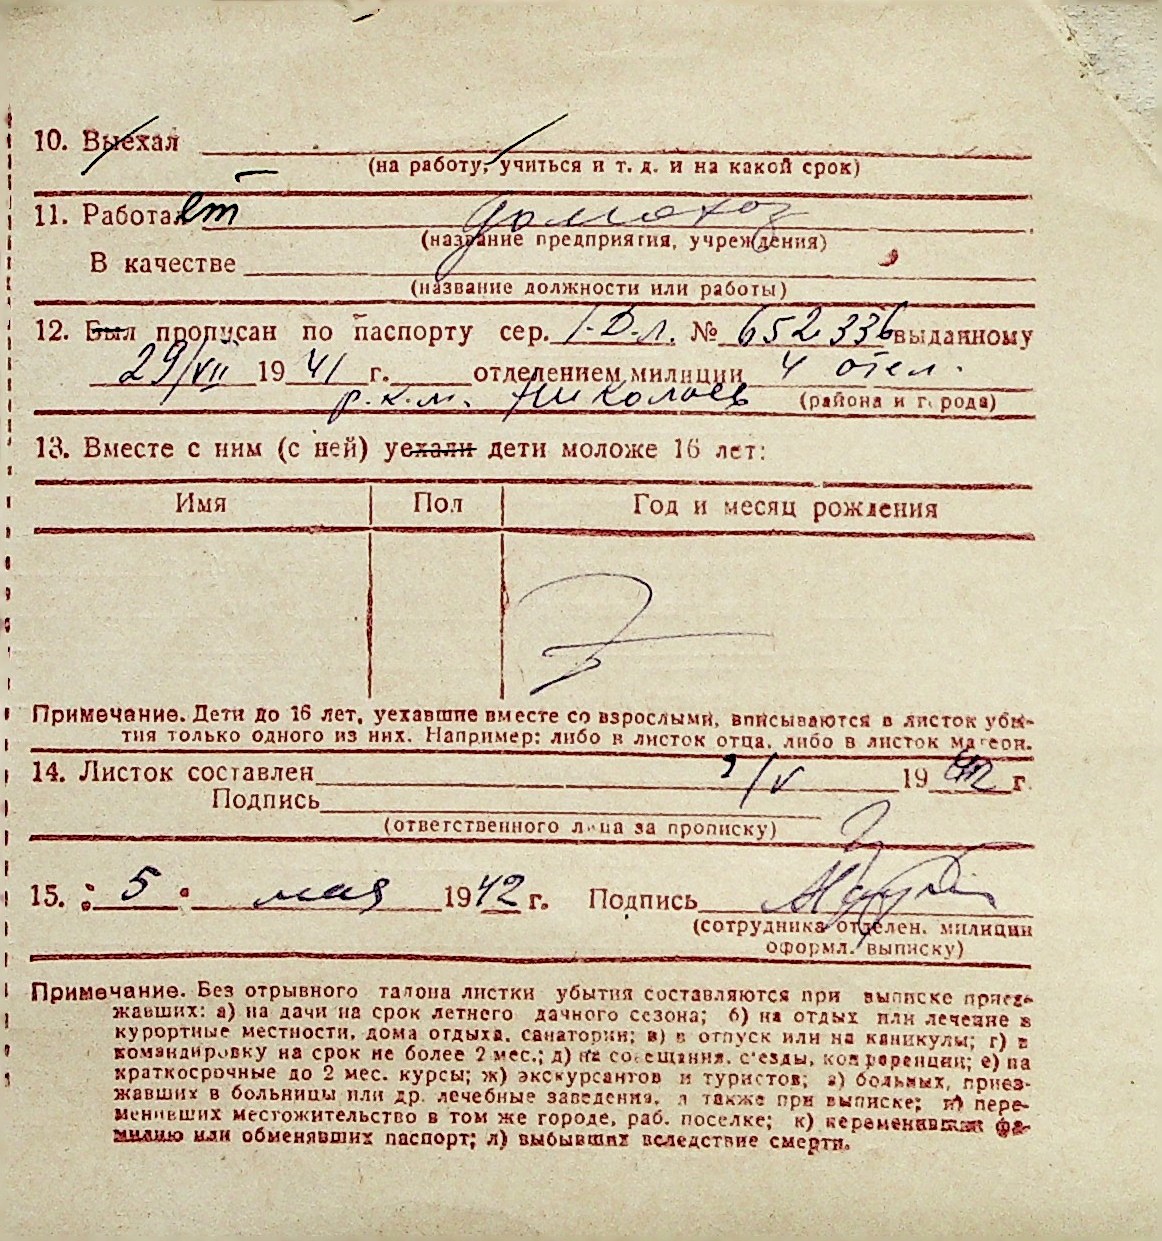 10. Выехал
(на работу, учиться и т. д. и на какой срок)
11. Работает домохоз
(название предприятия, учреждения)
В качестве
(название должности или работы)
12. Был прописан по паспорту сер. I-Д-л. № 652336 выданному
29/VII 1941 г. отделением милиции 4 отел.
р.к.м. Николаев (района и города)
13. Вместе с ним (с ней) уехали дети моложе 16 лет:
Имя Пол Год и месяц рождения
Примечание. Дети до 16 лет, уехавшие вместе со взрослыми, вписываются в листок убы-
тия только одного из них. Например: либо в листок отца, либо в листок матери.
14. Листок составлен /V 1942 г.
Подпись
(ответственного лица за прописку)
15. „5“ мая 1942 г. Подпись
(сотрудника отделен. милиции
оформл. выписку)
Примечание. Без отрывного талона листки убытия составляются при выписке приез-
жавших: а) на дачи на срок летнего дачного сезона; б) на отдых или лечение в
курортные местности, дома отдыха, санатории; в) в отпуск или на каникулы; г) в
командировку на срок не более 2 мес.; д) на совещания, съезды, конференции; е) на
краткосрочные до 2 мес. курсы; ж) экскурсантов и туристов; з) больных, приез-
жавших в больницы или др. лечебные заведения, а также при выписке; и) пере-
менивших местожительство в том же городе, раб. поселке; к) переменивших фа-
милию или обменявших паспорт; л) выбывших вследствие смерти.